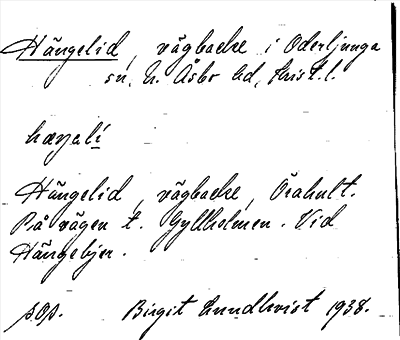 Hängelid, vägbacke i Oderljunga
sn, N. Åsbo hd, Krist. l.
hæŋalí
Hängelid, vägbacke, Örahult.
På vägen t. Gyllholmen. Vid
Hängebjer.
sop. Birgit Lundkvist 1938.